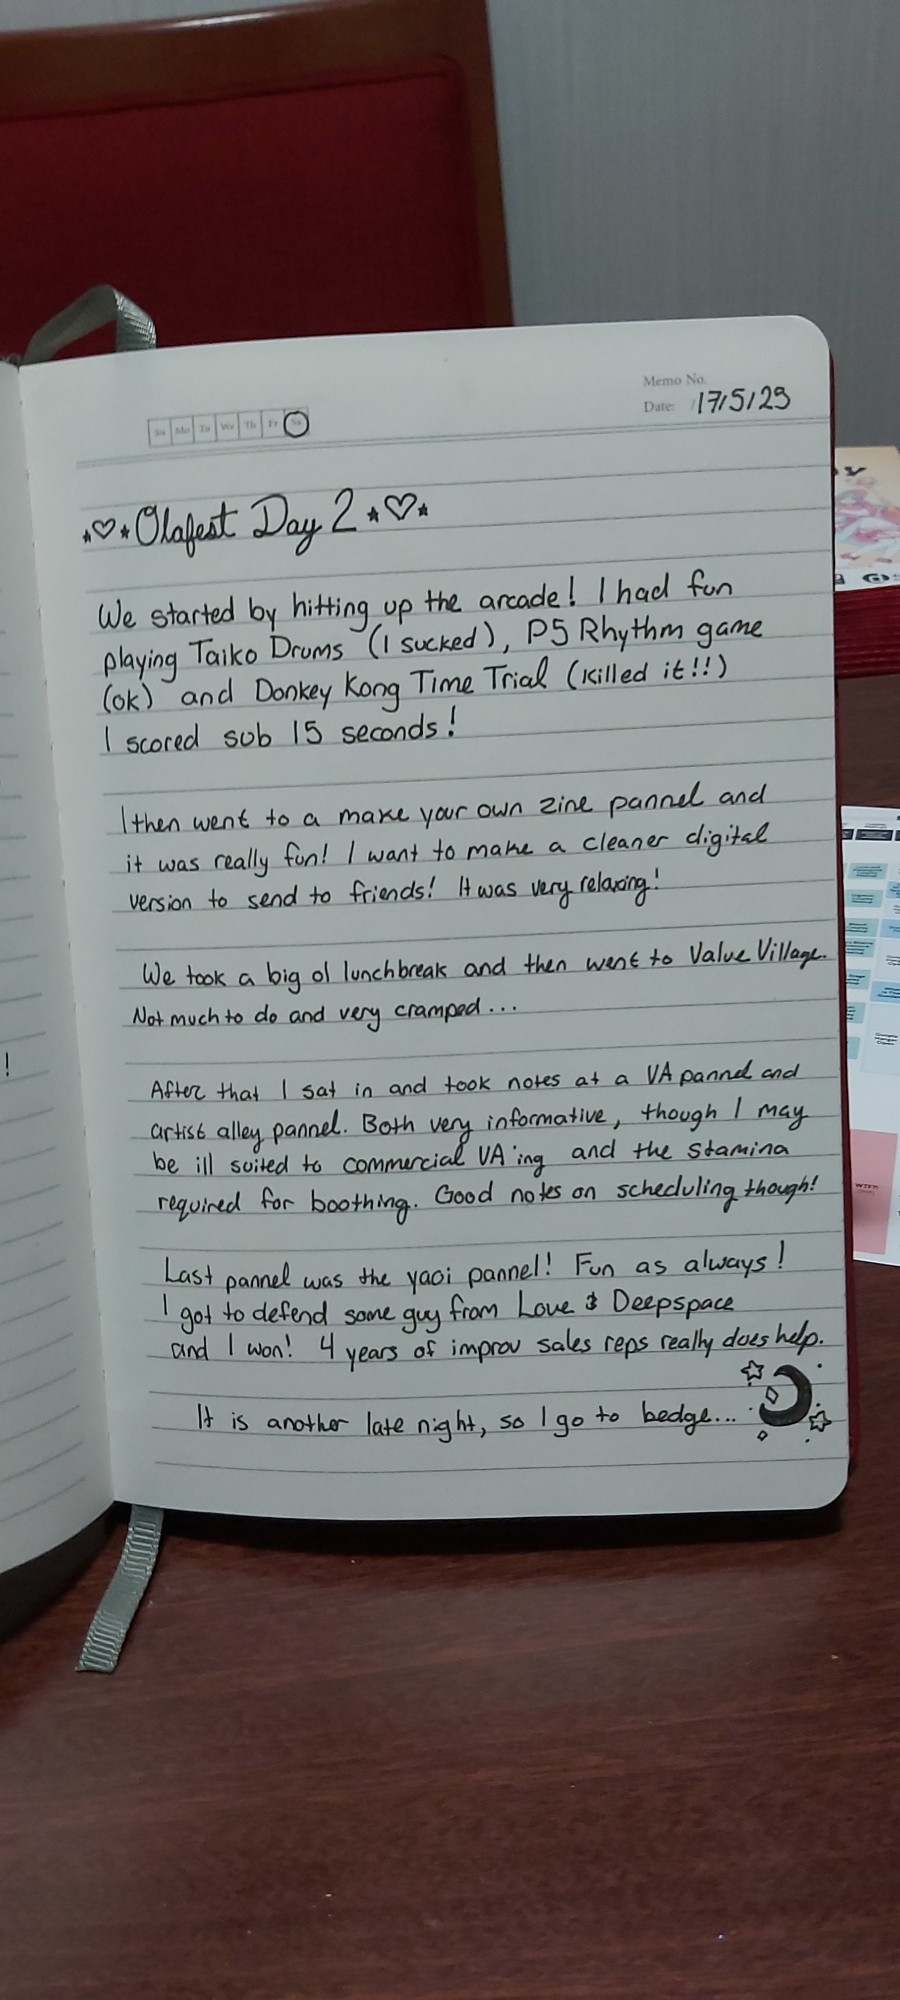 Memo No.
Date: 17/5/25
Su Mo Tu We Th Fr Sa
Olafest Day 2
We started by hitting up the arcade! I had fun
playing Taiko Drums (I sucked), P5 Rhythm game
(ok) and Donkey Kong Time Trial (killed it!!)
I scored sub 15 seconds!
I then went to a make your own zine pannel and
it was really fun! I want to make a cleaner digital
version to send to friends! It was very relaxing!
We took a big ol lunchbreak and then went to Value Village.
Not much to do and very cramped...
After that I sat in and took notes at a VA pannel and
artist alley pannel. Both very informative, though I may
be ill suited to commercial VA'ing and the stamina
required for boothing. Good notes on scheduling though!
Last pannel was the yaoi pannel! Fun as always!
I got to defend some guy from Love & Deepspace
and I won! 4 years of improv sales reps really does help.
It is another late night, so I go to bedge...
!